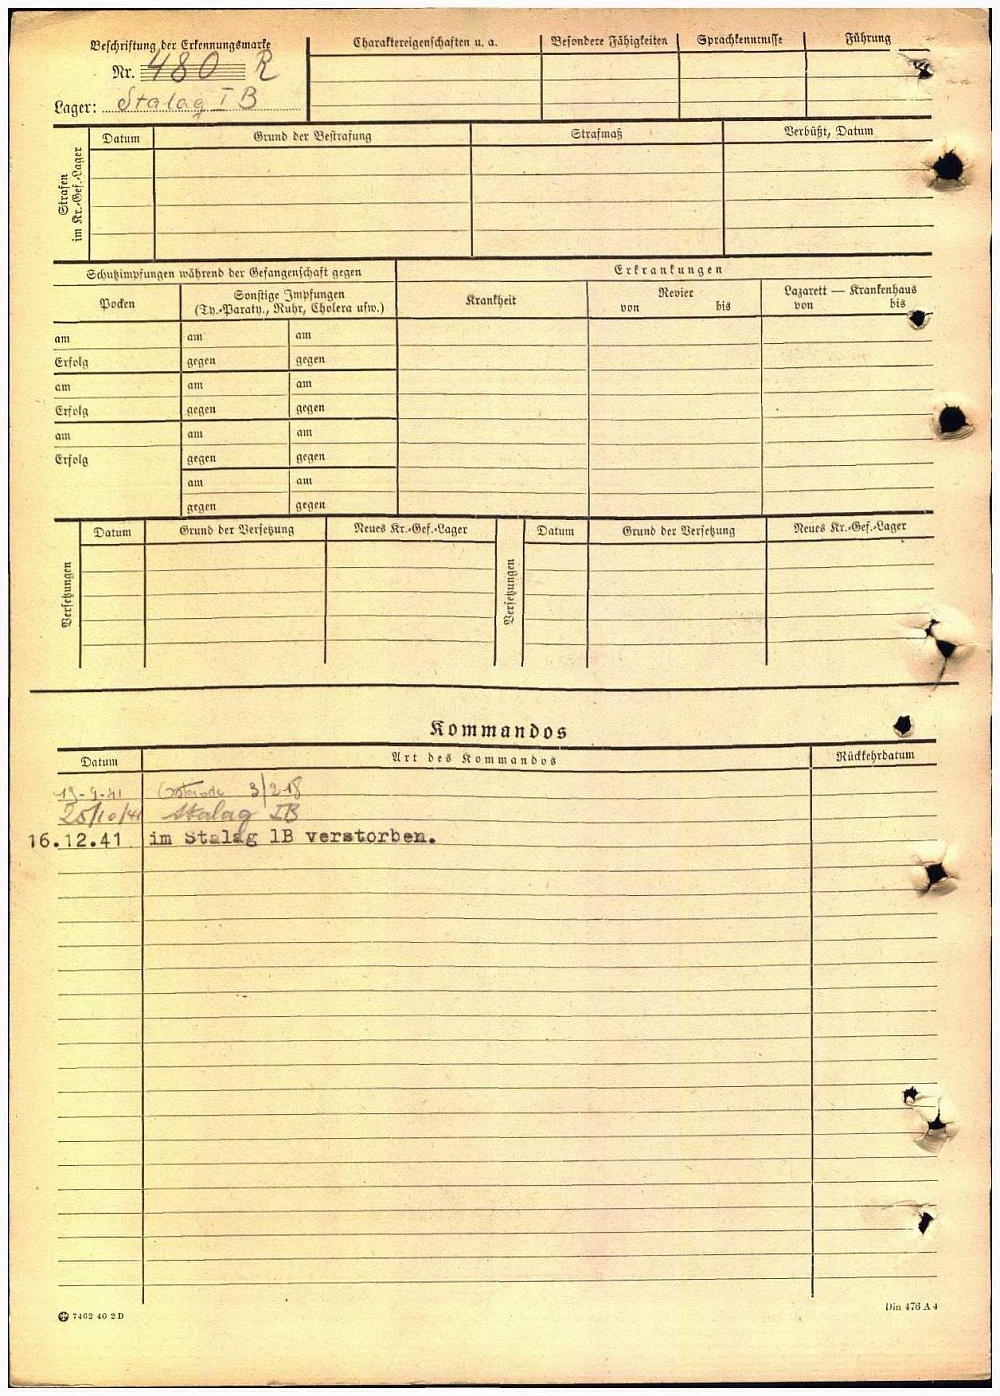 Beschriftung der Erkennungsmarke
Nr. 480 R
Lager: Stalag I B
Charaktereigenschaften u. a.
Besondere Fähigkeiten
Sprachkenntnisse
Führung
Strafen im Kr.-Gef.-Lager
Datum
Grund der Bestrafung
Strafmaß
Verbüßt, Datum
Schutzimpfungen während der Gefangenschaft gegen
Erkrankungen
Pocken
Sonstige Impfungen
(Ty.-Paraty., Ruhr, Cholera usw.)
Krankheit
Revier
von bis
Lazarett — Krankenhaus
von bis
am am am
Erfolg gegen gegen
am am am
Erfolg gegen gegen
am am am
Erfolg gegen gegen
am am
gegen gegen
Versetzungen
Datum
Grund der Versetzung
Neues Kr.-Gef.-Lager
Versetzungen
Datum
Grund der Versetzung
Neues Kr.-Gef.-Lager
Kommandos
Datum
Art des Kommandos
Rückkehrdatum
19-9-41 Osterode
25/10/41 Stalag IB
16.12.41 im Stalag 1B verstorben.
7462 40 2D
Din 476 A 4